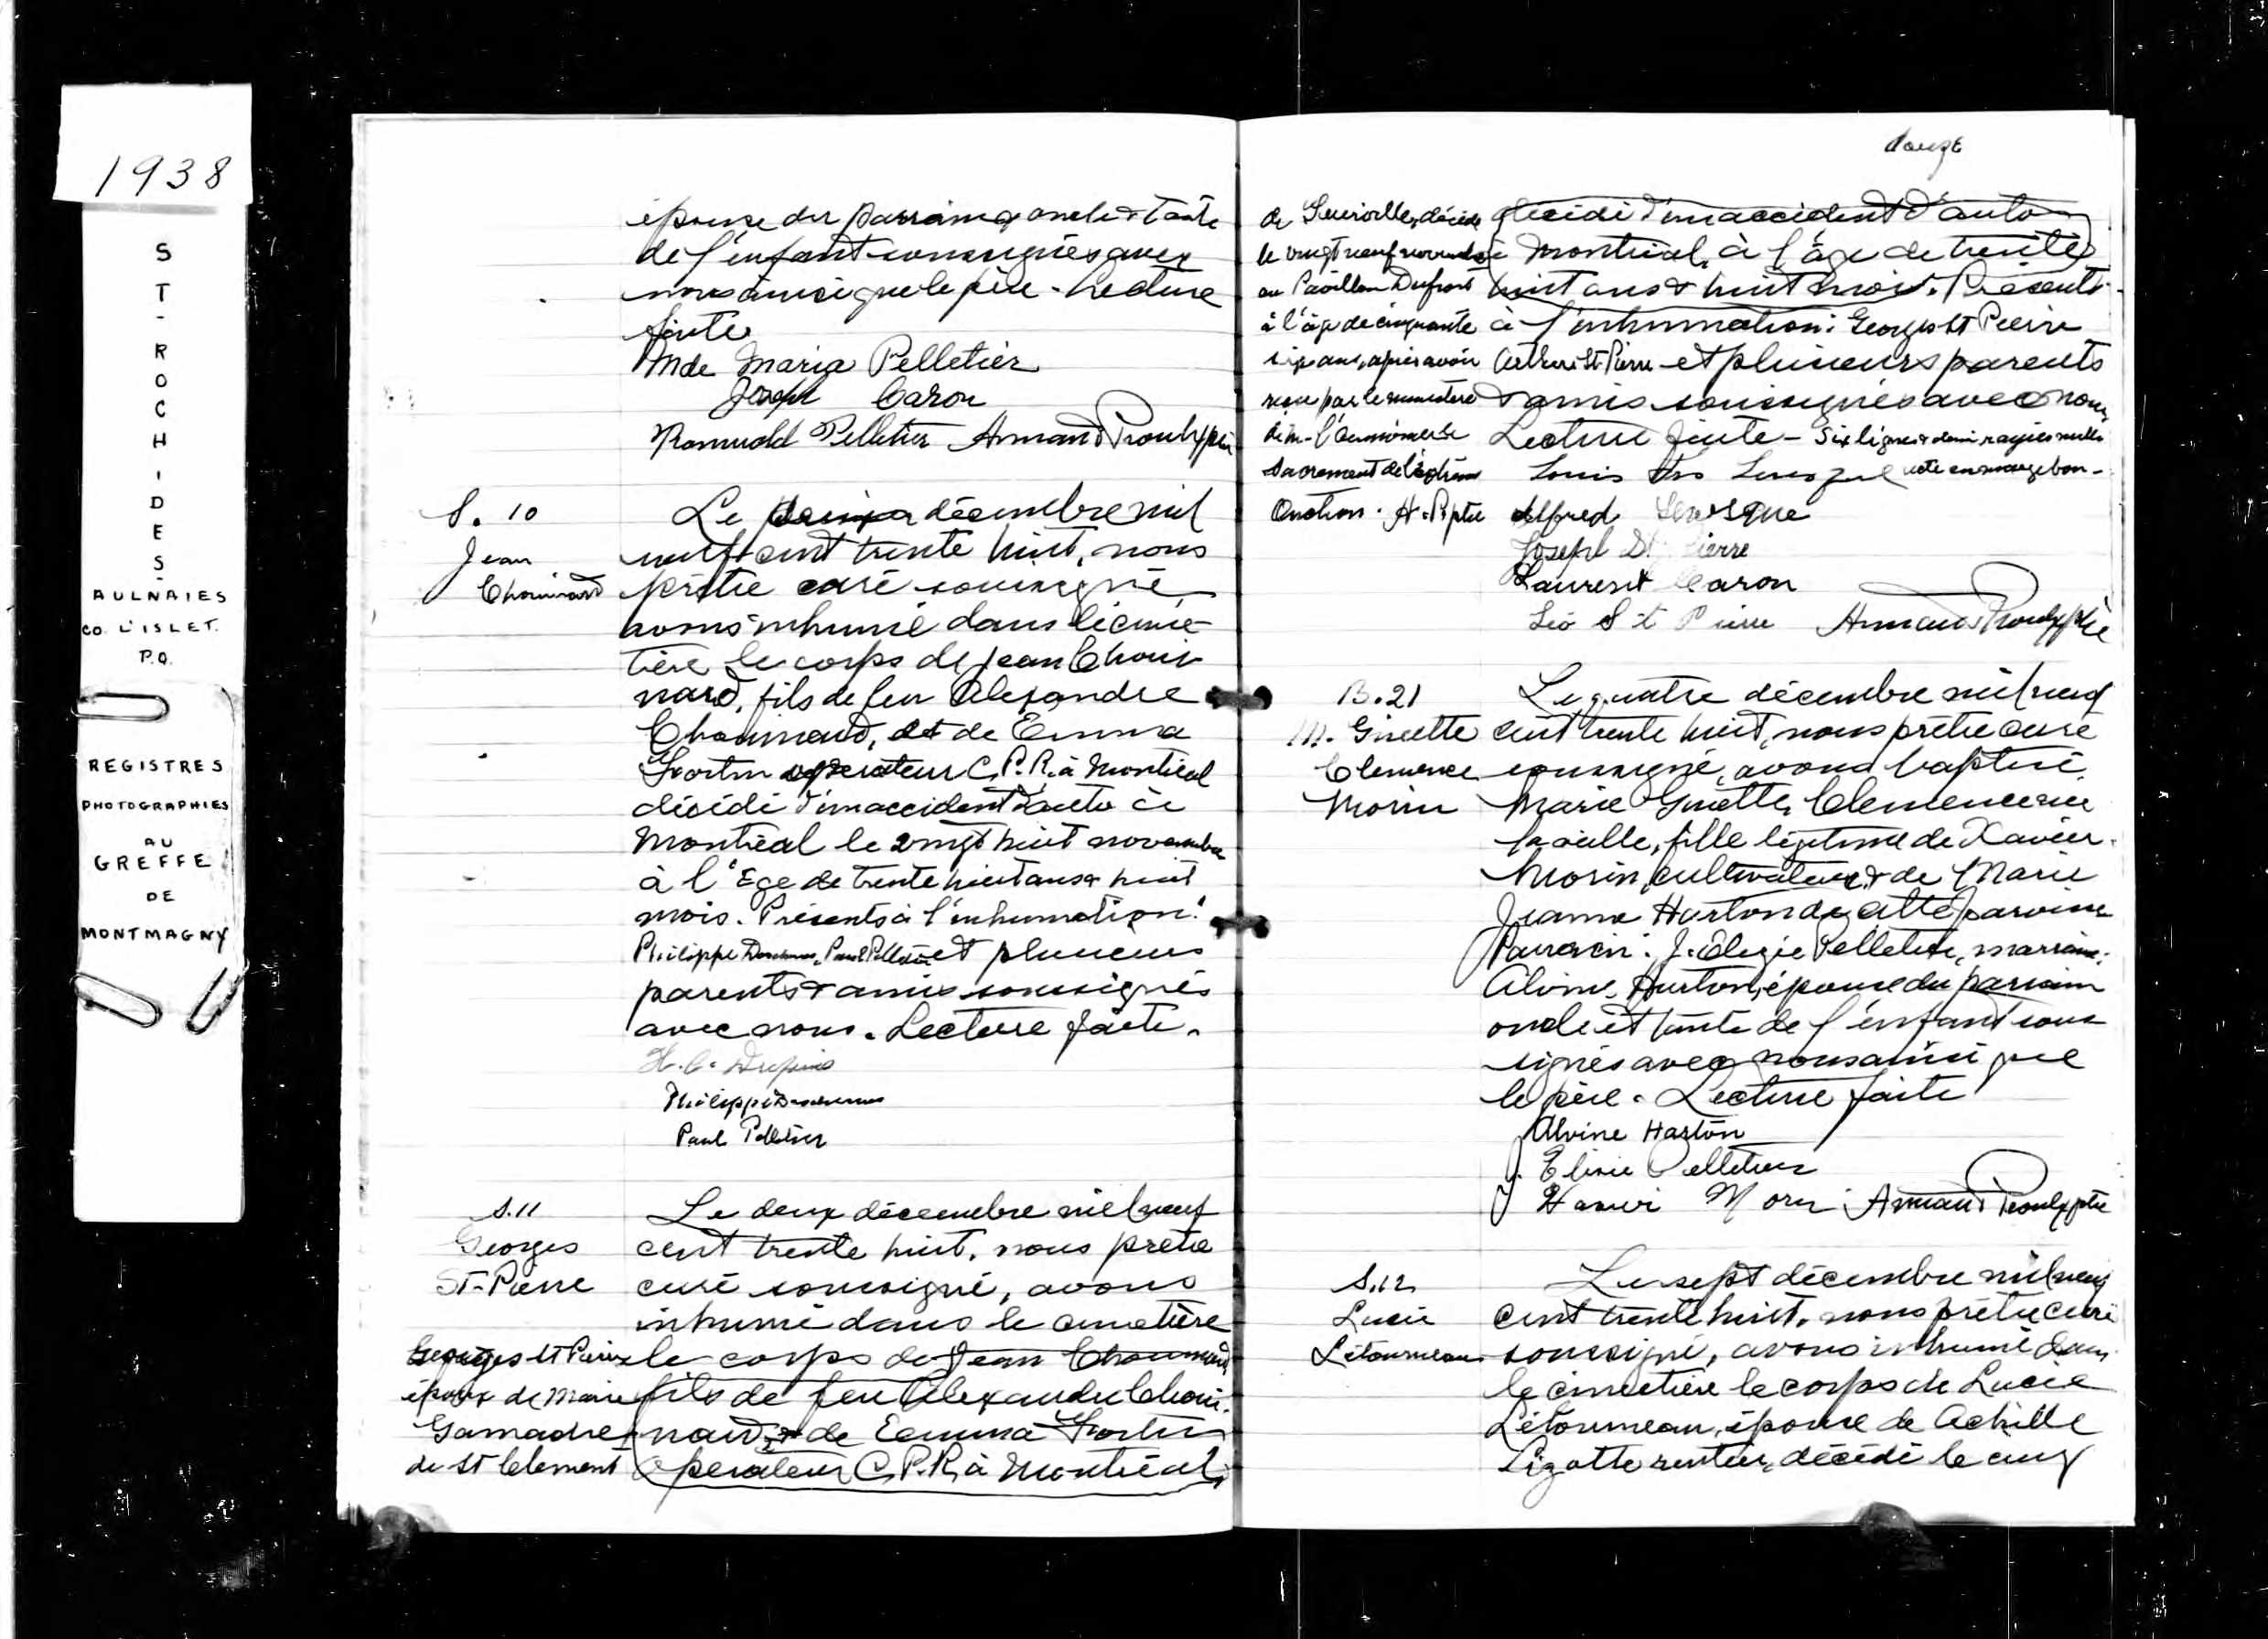 1938
ST-ROCH-DES-
AULNAIES
CO. L'ISLET.
P.Q.
REGISTRES
PHOTOGRAPHIES
AU
GREFFE
DE
MONTMAGNY
épouse du parrain, oncle & tante
de l'enfant soussignés avec
nous ainsi que le père. Lecture
faite.
Mde Maria Pelletier
Joseph Caron
Romuald Pelletier Armand Proulx ptre
S. 10
Jean
Chouinard
Le décembre mil
neuf cent trente huit, nous
prêtre curé soussigné
avons inhumé dans le cime-
tière le corps de Jean Choui-
nard, fils de feu Alexandre
Chouinard, et de Emma
Fortin opérateur C.P.R. à Montréal
décédé d'un accident d'auto à
Montréal le vingt huit novembre
à l'âge de trente huit ans & huit
mois. Présents à l'inhumation:
Philippe Paul Pelletier et plusieurs
parents & amis soussignés
avec nous. Lecture faite.
H.C. Dupuis
Philippe
Paul Pelletier
S.11
Georges
St-Pierre
Le deux décembre mil neuf
cent trente huit, nous prêtre
curé soussigné, avons
inhumé dans le cimetière
le corps de Jean Chouinard,
fils de feu Alexandre Choui-
nard, & de Emma Fortin
opérateur C.P.R. à Montréal,
Georges St Pierre
époux de Marie
Gamache
de St Clement
douze
de décédé
le vingt neuf novembre
au Pavillon Dufrost
à l'âge de cinquante
six ans, après avoir
reçu par le ministère
de m. l'aumônier le
Sacrement de l'extrême
Onction. A. P. ptre
décédé d'un accident d'auto
à Montréal, à l'âge de trente
huit ans & huit mois. Présents
à l'inhumation: Georges St Pierre
Arthur St-Pierre et plusieurs parents
& amis soussignés avec nous
Lecture faite - Six lignes & demi rayées nulles
note en marge bon -
Louis Levesque
Alfred Levesque
Joseph St Pierre
Laurent Caron
Léo St Pierre Armand Proulx ptre
B.21
M. Ginette
Clemence
Morin
Le quatre décembre mil neuf
cent trente huit, nous prêtre curé
soussigné, avons baptisé
Marie Ginette, Clemence née
la veille, fille légitime de Xavier
Morin, cultivateur, & de Marie
Jeanne Hurton de cette paroisse
Parrain: J. Elzie Pelletier, marraine:
Alvine Hurton, épouse du parrain
oncle et tante de l'enfant sous-
signés avec nous ainsi que
le père. Lecture faite
Alvine Harton
J. Elisie Pelletier
Xavier Morin Armand Proulx ptre
S.12
Lucie
Létourneau
Le sept décembre mil neuf
cent trente huit, nous prêtre curé
soussigné, avons inhumé dans
le cimetière le corps de Lucie
Létourneau, épouse de Achille
Lizotte rentier, décédé le cinq